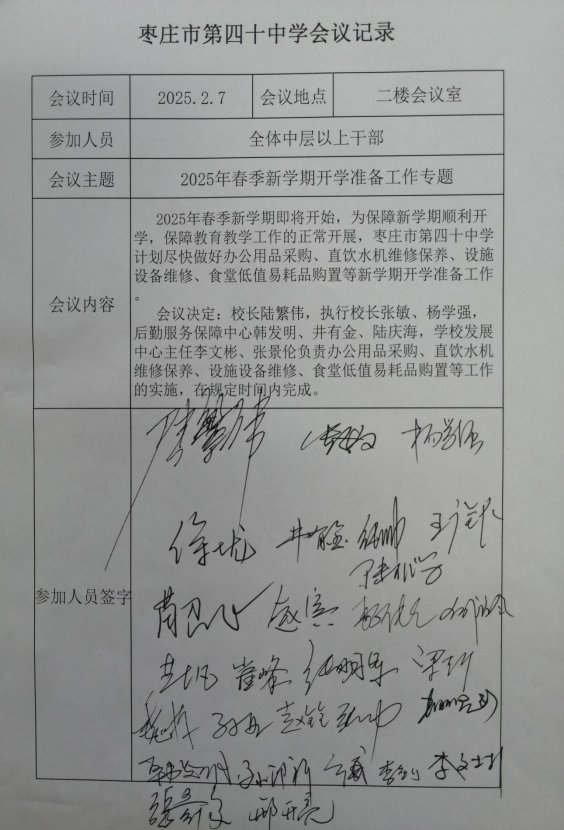 枣庄市第四十中学会议记录
会议时间 2025.2.7 会议地点 二楼会议室
参加人员 全体中层以上干部
会议主题 2025年春季新学期开学准备工作专题
会议内容
2025年春季新学期即将开始，为保障新学期顺利开
学，保障教育教学工作的正常开展，枣庄市第四十中学
计划尽快做好办公用品采购、直饮水机维修保养、设施
设备维修、食堂低值易耗品购置等新学期开学准备工作
。
会议决定：校长陆繁伟，执行校长张敏、杨学强，
后勤服务保障中心韩发明、井有金、陆庆海，学校发展
中心主任李文彬、张景伦负责办公用品采购、直饮水机
维修保养、设施设备维修、食堂低值易耗品购置等工作
的实施，在规定时间内完成。
参加人员签字
陆繁伟 张敏 杨学强
徐尤 井有金
赵宾
崔峰 张明军
赵铨
韩发明 李文彬
张景伦 邢开亮